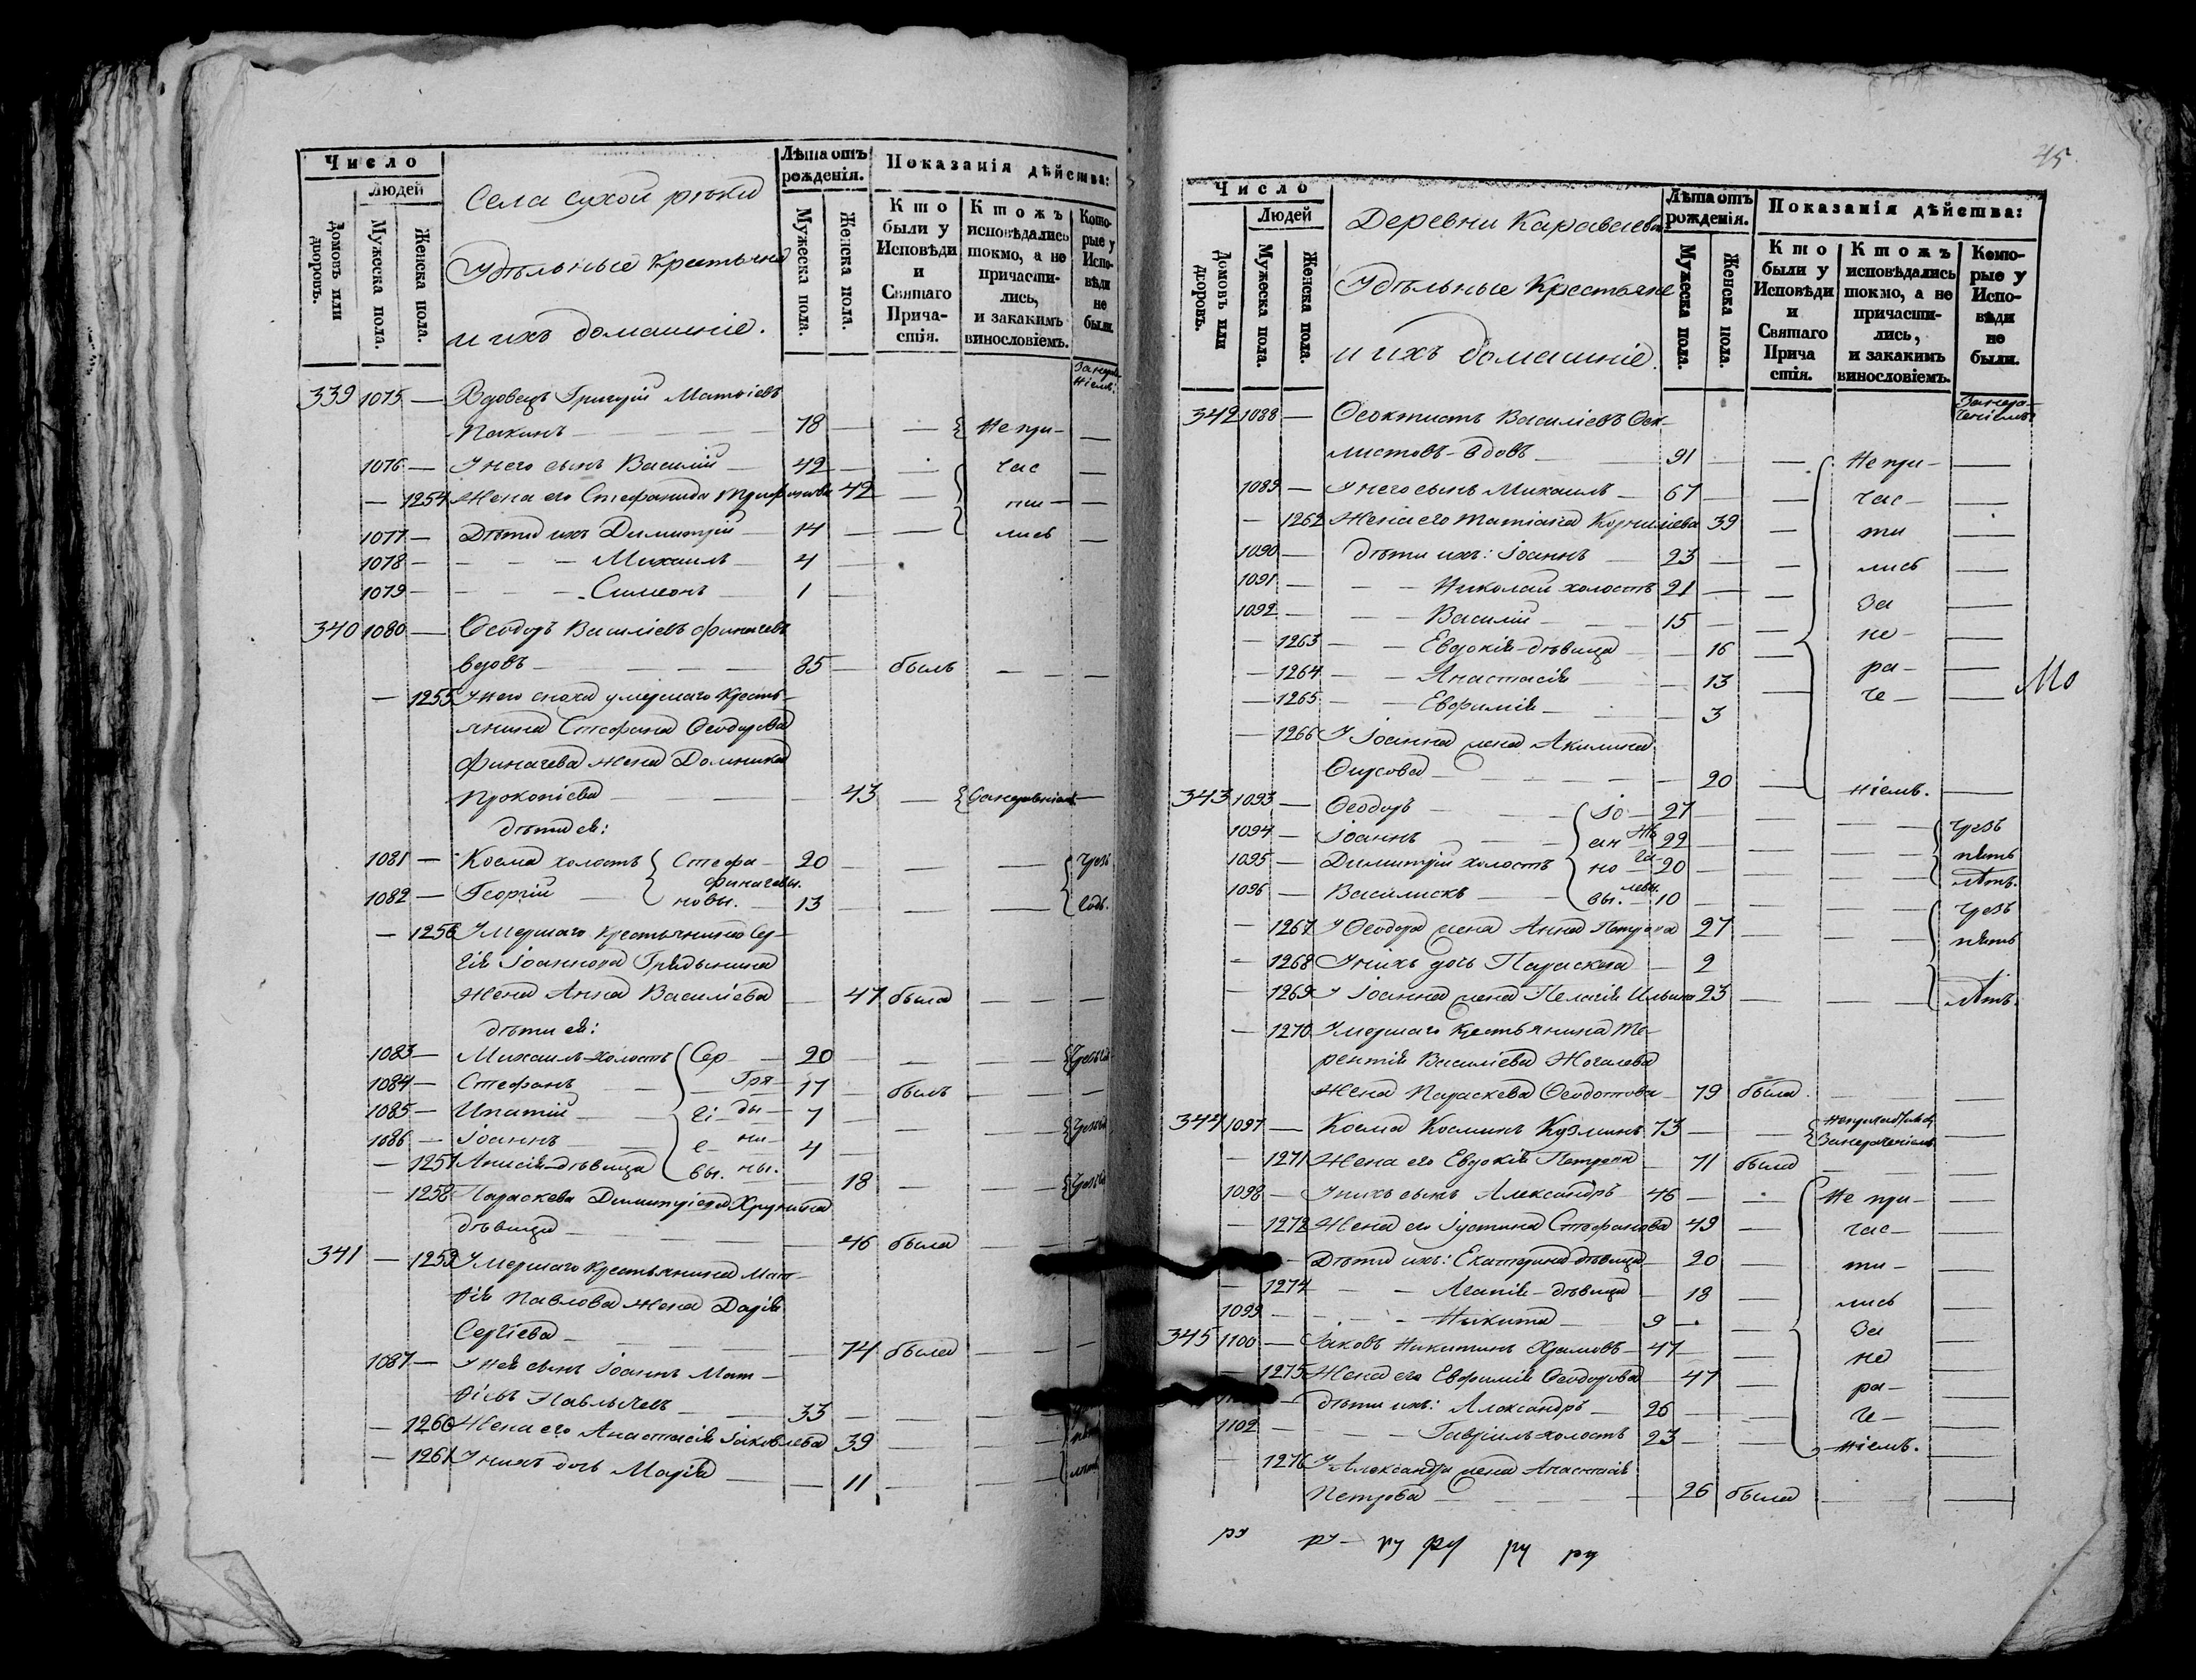 Число
Людей
Домовъ или дворовъ.
Мужеска пола.
Женска пола.
Села сухой рѣки
Удѣльные крестьяне
и ихъ домашніе.
Лѣта отъ рожденія.
Мужеска пола.
Женска пола.
Показанія дѣйства:
Кто были у Исповѣди и Святаго Причастія.
Ктожъ исповѣдались токмо, а не причастились, и закакимъ винословіемъ.
Которые у Исповѣди не были.
339 1075 — Вдовецъ Григорій Матѳіевъ
78 — — Не при- —
1076 — У него сынъ Василій — 42 — — час —
— 1254 Жена его Стефанида 42 — ти —
1077 — Дѣти ихъ Димитрій — 14 — — лись —
1078 — — — — Михаилъ — 4 —
1079 — — — — Симеонъ 1 —
340 1080 — Ѳеодоръ Василіевъ Финагевъ
вдовъ — — — — 85 — былъ — —
— 1255 У него сноха умершаго кресть-
янина Стефана Ѳеодорова
Финагева жена Домника
Прокопіева — — — 43 —
дѣти ея:
1081 — Косма холостъ Стефа- 20 — — — чрезъ
Финагевы.
1082 — Георгій — новы. — 13 — — — годъ.
— 1256 Умершаго крестьянина Сер-
гія Іоаннова Грядынина
жена Анна Василіева — 47 была — —
дѣти ея:
1083 — Михаилъ холостъ Сер — 20 — — —
1084 — Стефанъ — Гря- 17 — былъ — —
1085 — Ипатій — гі- ды- 7 — — —
1086 — Іоаннъ — е- ни- 4 —
— 1257 Анисія дѣвица вы. ны. — 18 — —
— 1258 Параскева Димитріева
дѣвица — — — 46 была — —
341 — 1259 Умершаго крестьянина Мат-
ѳія Павлова жена Дарія
Сергіева — — — 74 была — —
1087 — У ней сынъ Іоаннъ Мат-
ѳіевъ — 33 — — —
— 1260 Жена его Анастасія Іаковлева 39 — —
— 1261 У нихъ дочь Марія — — 11 — —
45.
Число
Людей
Домовъ или дворовъ.
Мужеска пола.
Женска пола.
Деревни Караваева
Удѣльные Крестьяне
и ихъ домашніе.
Лѣта отъ рожденія.
Мужеска пола.
Женска пола.
Показанія дѣйства:
Кто были у Исповѣди и Святаго Прича стія.
Ктожъ исповѣдались токмо, а не причастились, и закакимъ винословіемъ.
Которые у Исповѣди не были.
Занера-
ченіемъ:
342 1088 — Ѳеоктистъ Василіевъ Ѳеок-
тистовъ — вдовъ — 91 — — Не при- —
1089 — У него сынъ Михаилъ — 67 — — час- —
— 1262 Жена его Татіана Корниліева 39 — ти —
1090 — дѣти ихъ: Іоаннъ — 23 — — лись —
1091 — — — Николай холостъ 21 — — За —
1092 — — — Василій — 15 — — не- —
— 1263 — — Евдокія дѣвица — 16 — ра- —
— 1264 — — Анастасія — 13 — че — —
— 1265 — — Евфимія — 3
— 1266 У Іоанна жена Акилина
— — — 20 — ніемъ. —
343 1093 — Ѳеодоръ — — Іо- 27 — — — чрезъ
1094 — Іоаннъ — — ан- Жо- 22 — — — пять
1095 — Димитрій холостъ но- га- 20 — — — лѣтъ.
1096 — Василискъ — вы. левы. 10 — — — чрезъ
— 1267 У Ѳеодора жена Анна Петрова 27 — — пять
— 1268 У нихъ дочь Параскева — 2
— 1269 У Іоанна жена Пелагія Ильина 23 — — лѣтъ.
— 1270 Умершаго крестьянина Те-
рентія Василіева Жогалева
жена Параскева Ѳеодотова — 79 была. — —
344 1097 — Косма Косминъ Кузминъ 73 — — Занераченіемъ —
— 1271 Жена его Евдокія Петрова — 71 была — —
1098 — У нихъ сынъ Александръ — 46 — — Не при- —
— 1272 Жена его Іустина Стефанова 49 — час- —
Дѣти ихъ: Екатерина дѣвица — 20 — ти- —
— 1274 — — Агапія — дѣвица — 18 — лись —
1099 — — — — Никита — 9 — — За —
345 1100 — Іаковъ Никитинъ Храмовъ — 47 — — не —
— 1275 Жена его Евфимія Ѳеодорова 47 — ра- —
дѣти ихъ: Александръ — 26 — — че- —
1102 — — — Гавріилъ холостъ 23 — — ніемъ. —
— 1276 У Александра жена Анастасія
Петрова — — 26 была — —
ру ру — ру ру ру ру